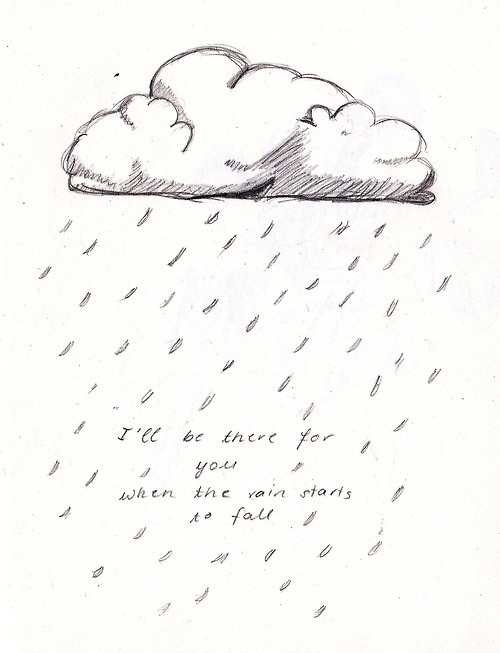 I'll be there for
you
when the rain starts
to fall